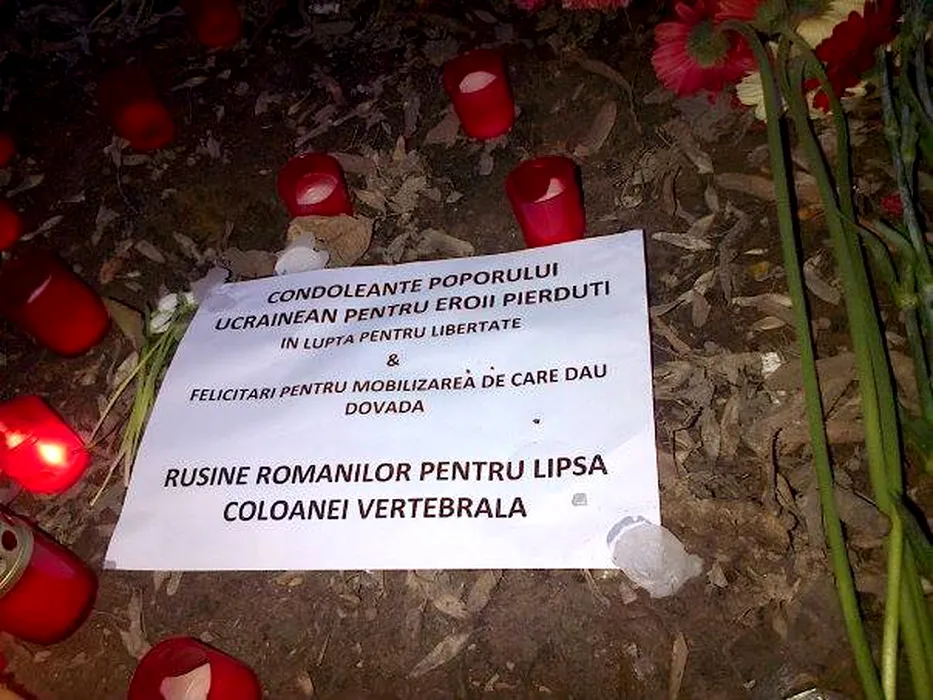 CONDOLEANTE POPORULUI
UCRAINEAN PENTRU EROII PIERDUTI
IN LUPTA PENTRU LIBERTATE
&
FELICITARI PENTRU MOBILIZAREA DE CARE DAU
DOVADA
RUSINE ROMANILOR PENTRU LIPSA
COLOANEI VERTEBRALA